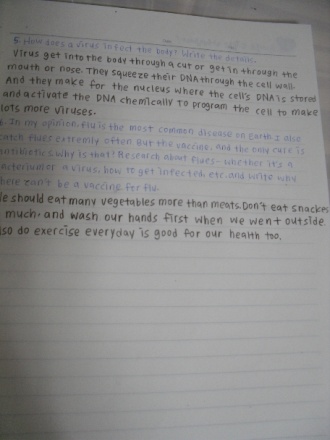 5. How does a virus infect the body? Write the details.
Virus get into the body through a cut or get in through the
mouth or nose. They squeeze their DNA through the cell wall.
And they make for the nucleus where the cell's DNA is stored
and activate the DNA chemically to program the cell to make
lots more viruses.
6. In my opinion, flu is the most common disease on Earth. I also
catch flues extremly often. But the vaccine, and the only cure is
antibiotics. Why is that? Research about flues- whether it's a
bacteria or a virus, how to get infected, etc. and write why
there can't be a vaccine for flu.
We should eat many vegetables more than meats. Don't eat snackes
much. and wash our hands first when we went outside.
Also do exercise everyday is good for our health too.